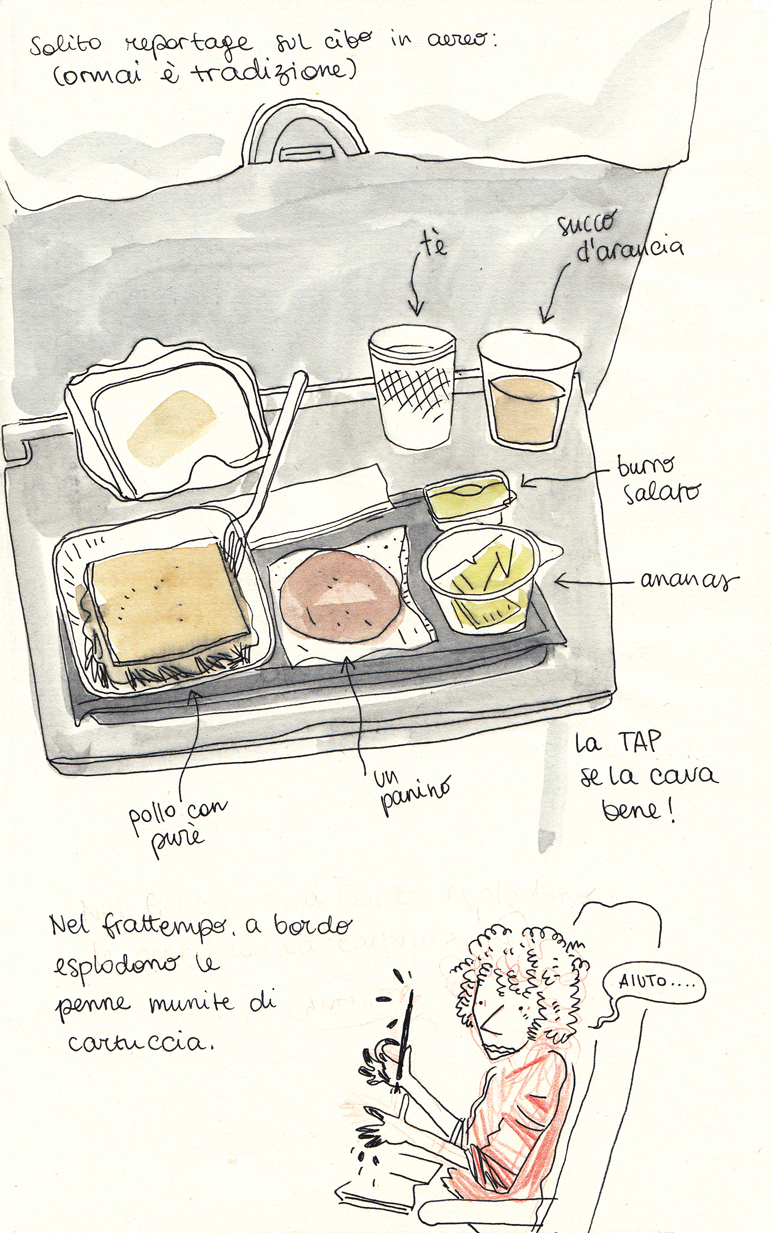 Solito reportage sul cibo in aereo:
(ormai è tradizione)
tè
succo
d'arancia
burro
salato
ananas
pollo con
purè
un
panino
La TAP
se la cava
bene!
Nel frattempo, a bordo
esplodono le
penne munite di
cartuccia.
AIUTO....